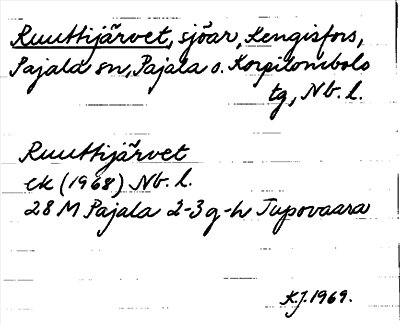 Ruuttijärvet, sjöar, Kengisfors,
Pajala sn, Pajala o. Korpilombolo
tg, Nb. l.
Ruuttijärvet
ek (1968) Nb. l.
28 M Pajala 2-3 g-h Tupovaara
K.J. 1969.